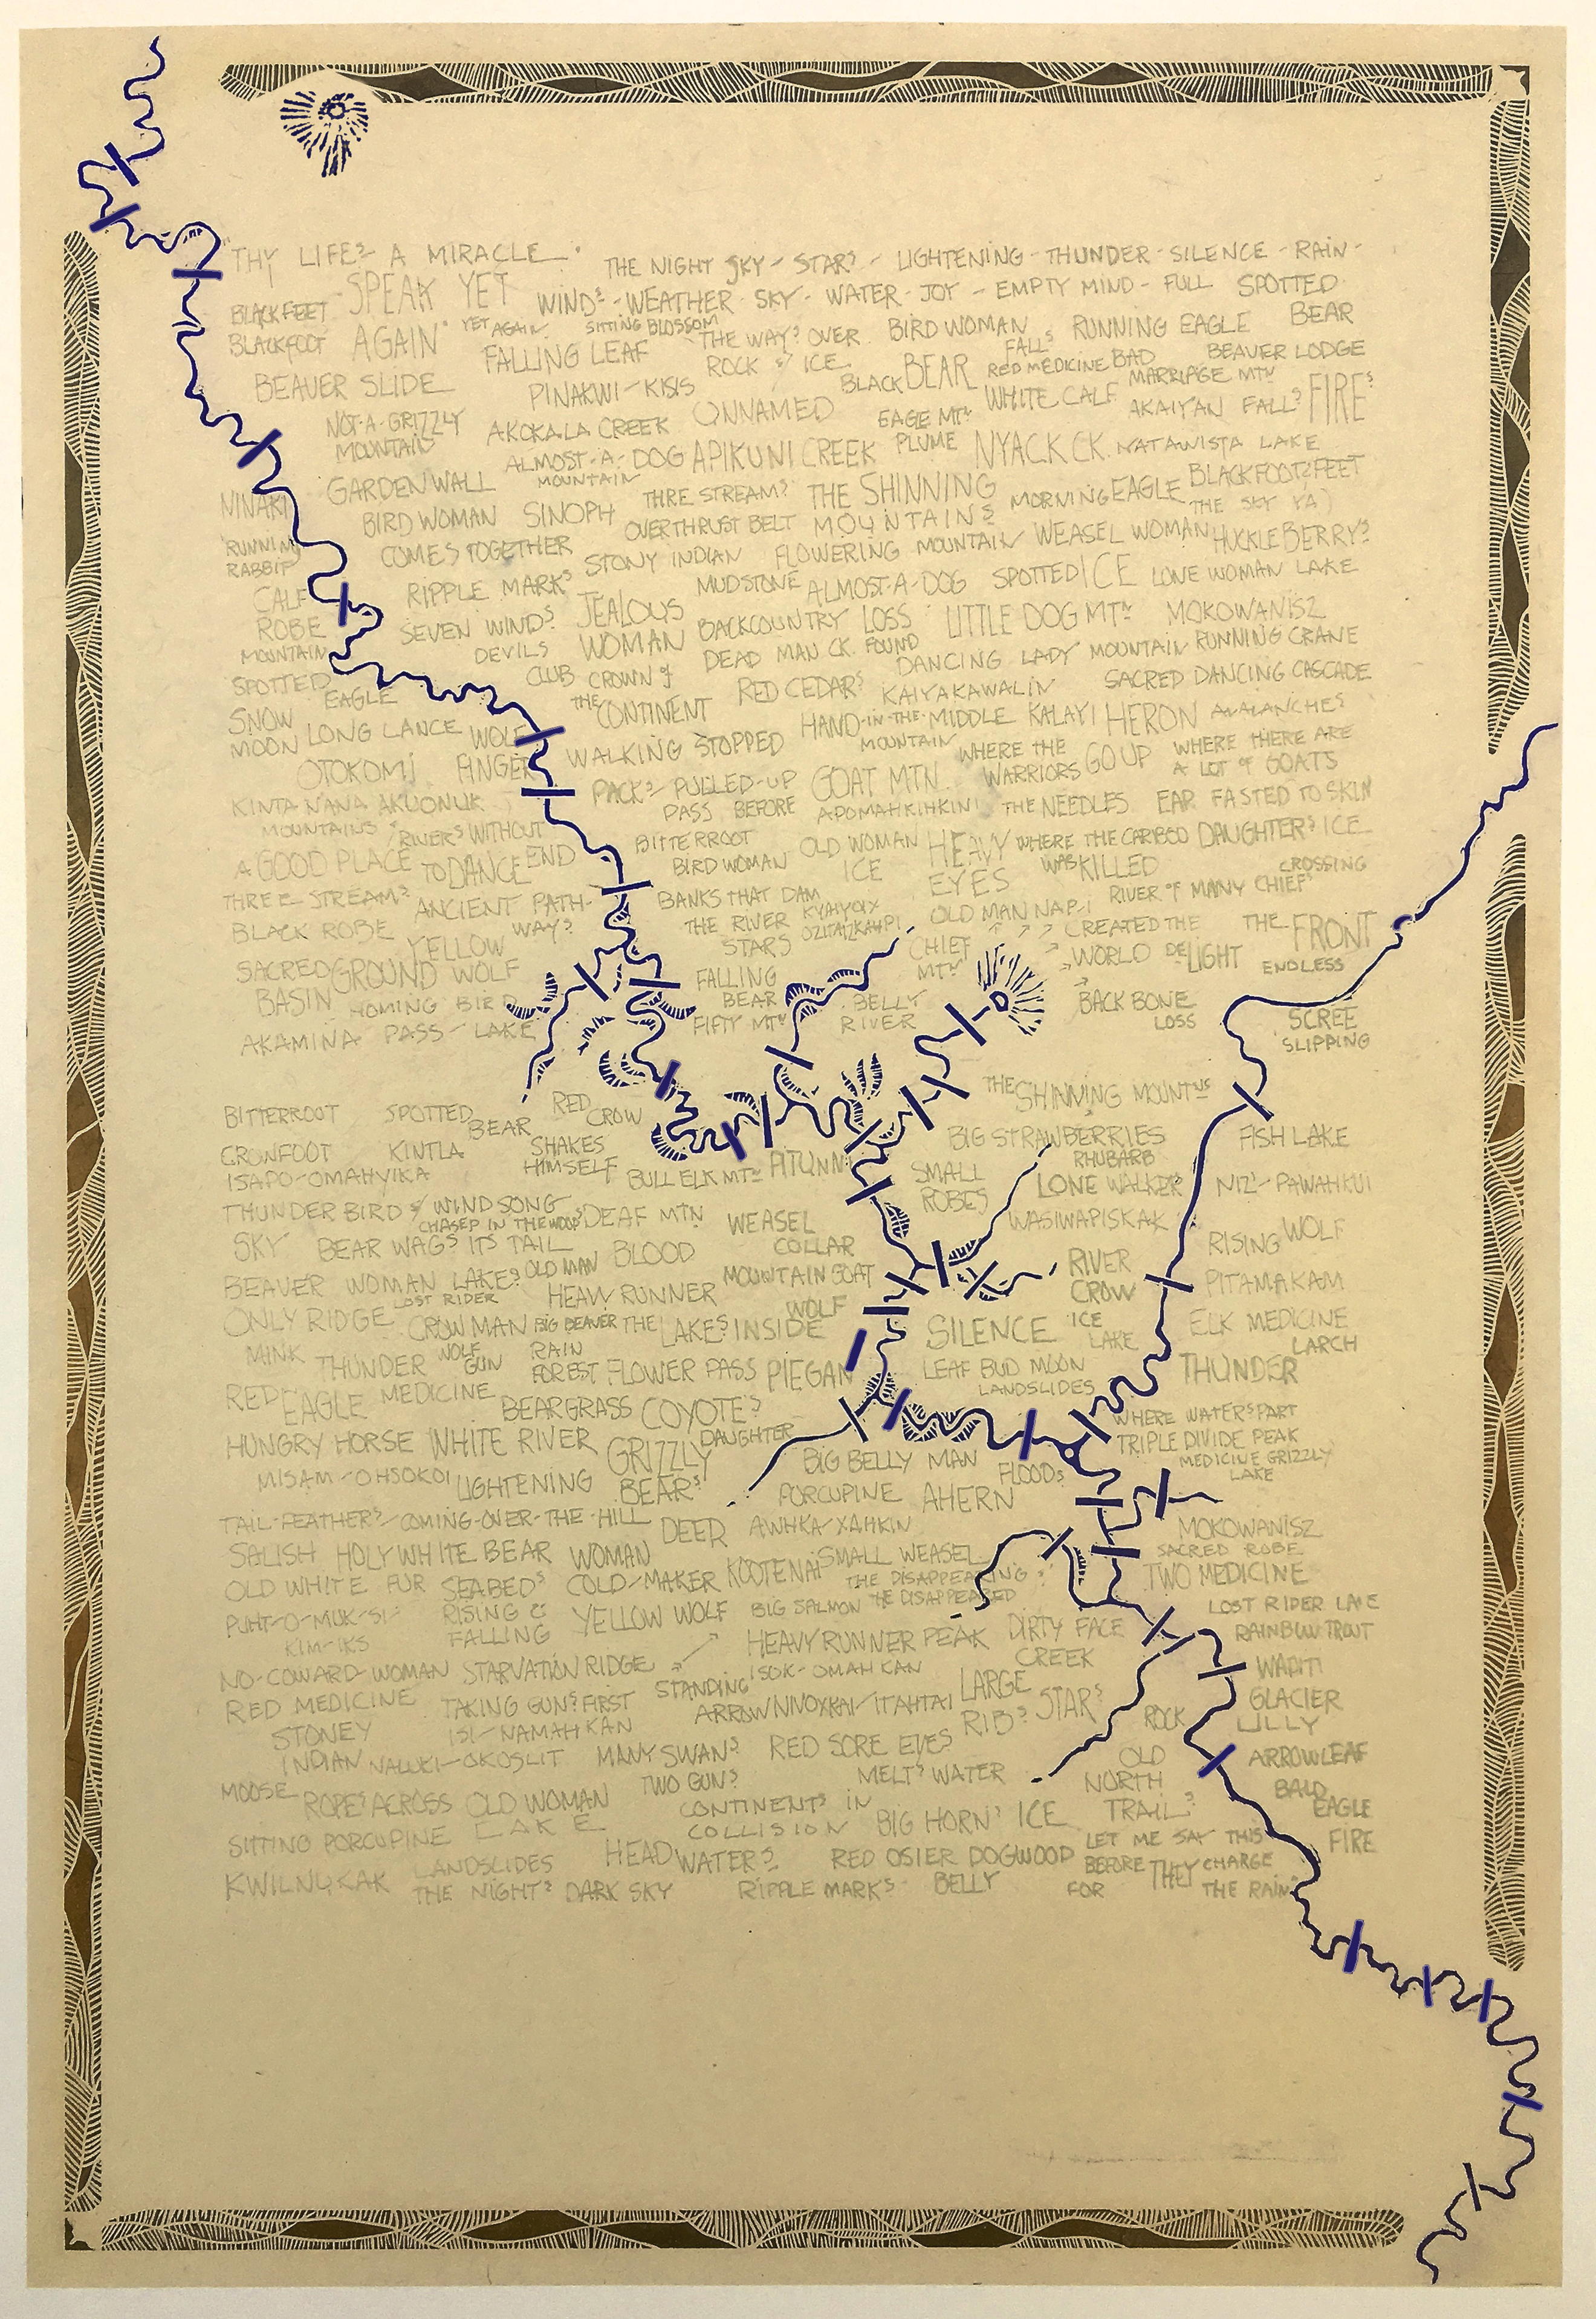 "THY LIFE'S A MIRACLE. THE NIGHT SKY - STARS - LIGHTENING - THUNDER - SILENCE - RAIN -
SPEAK YET WINDS - WEATHER - SKY - WATER - JOY - EMPTY MIND - FULL SPOTTED
BLACKFEET YET AGAIN SITTING BLOSSOM BEAR
BLACKFOOT AGAIN" FALLING LEAF THE WAYS OVER BIRD WOMAN FALLS RUNNING EAGLE
BEAVER SLIDE PINAKWI-KISIS ROCK & ICE BLACK BEAR RED MEDICINE BAD MARRIAGE MTN BEAVER LODGE
NOT-A-GRIZZLY MOUNTAIN AKOKALA CREEK UNNAMED EAGE MTN PLUME WHITE CALF AKAIYAN FALLS FIRES
ALMOST-A-DOG MOUNTAIN APIKUNI CREEK NYACK CK. NATAWISTA LAKE
GARDEN WALL THRE STREAMS THE SHINNING MOUNTAINS MORNING EAGLE BLACKFOOT/FEET
NINAKI BIRD WOMAN SINOPH OVERTHRUST BELT THE SKY
RUNNING RABBIT COMES TOGETHER STONY INDIAN FLOWERING MOUNTAIN WEASEL WOMAN HUCKLEBERRYS
CALF ROBE MOUNTAIN RIPPLE MARKS JEALOUS WOMAN MUDSTONE ALMOST-A-DOG SPOTTED ICE LONE WOMAN LAKE
SEVEN WINDS DEVILS BACKCOUNTRY LOSS LITTLE DOG MTN MOKOWANISZ
SPOTTED EAGLE CLUB CROWN of THE CONTINENT DEAD MAN CK. FOUND DANCING LADY MOUNTAIN RUNNING CRANE
SNOW MOON LONG LANCE WOLF RED CEDARS KAIYAKAWALIN SACRED DANCING CASCADE
OTOKOMI FINGER WALKING STOPPED HAND-IN-THE-MIDDLE MOUNTAIN KALAYI HERON AVALANCHES
KINTA NANA AKUONUK PACKS PULLED-UP GOAT MTN. WHERE THE WARRIORS GO UP WHERE THERE ARE A LOT of GOATS
MOUNTAINS & RIVERS WITHOUT END PASS BEFORE APOMAHKIHKINI THE NEEDLES EAR FASTED TO SKIN
A GOOD PLACE TO DANCE BITTERROOT OLD WOMAN ICE HEAVY EYES WHERE THE CARIBOO WAS KILLED DAUGHTERS ICE
BIRD WOMAN CROSSING
THREE STREAMS ANCIENT PATH-WAYS BANKS THAT DAM THE RIVER RIVER of MANY CHIEFS
BLACK ROBE YELLOW WOLF STARS OLD MAN NAPI CREATED THE WORLD THE FRONT
SACRED GROUND FALLING CHIEF MTN DELIGHT ENDLESS
BASIN HOMING BIRD BEAR BELLY RIVER BACK BONE LOSS SCREE
AKAMINA PASS - LAKE FIFTY MTN SLIPPING
BITTERROOT SPOTTED BEAR RED CROW THE SHINNING MOUNTNS
CROWFOOT KINTLA SHAKES HIMSELF BIG STRAWBERRIES FISH LAKE
ISAPO-OMAHYIKA BULL ELK MTN PITUNNI SMALL ROBES RHUBARB LONE WALKER NIZI-PAWAHKUI
THUNDER BIRD & WIND SONG CHASED IN THE WOODS DEAF MTN WEASEL COLLAR WASIWAPISKAK
SKY BEAR WAGS ITS TAIL BLOOD RISING WOLF
BEAVER WOMAN LAKES OLD MAN MOUNTAIN GOAT RIVER CROW PITAMAKAM
LOST RIDER HEAVY RUNNER WOLF
ONLY RIDGE CROW MAN BIG BEAVER THE LAKES INSIDE SILENCE ICE LAKE ELK MEDICINE
MINK THUNDER WOLF GUN RAIN FOREST FLOWER PASS PIEGAN LEAF BUD MOON LARCH
RED EAGLE MEDICINE LANDSLIDES THUNDER
BEARGRASS COYOTES WHERE WATERS PART
HUNGRY HORSE WHITE RIVER GRIZZLY DAUGHTER TRIPLE DIVIDE PEAK
MISAM-OHSOKOI LIGHTENING BEARS BIG BELLY MAN FLOODS MEDICINE GRIZZLY LAKE
TAIL-FEATHERS-COMING-OVER-THE-HILL DEER PORCUPINE AHERN
SALISH HOLY WHITE BEAR WOMAN AWHKA/XAHKIN MOKOWANISZ
OLD WHITE FUR SEABEDS COLD-MAKER KOOTENAI SMALL WEASEL SACRED ROBE
THE DISAPPEARING TWO MEDICINE
PUHT-O-MUK-SI-KIM-IKS RISING & FALLING YELLOW WOLF BIG SALMON THE DISAPPEARED LOST RIDER LAKE
HEAVY RUNNER PEAK DIRTY FACE CREEK RAINBOW TROUT
NO-COWARD-WOMAN STARVATION RIDGE ISOK-OMAH KAN WAPITI
RED MEDICINE TAKING GUNS FIRST STANDING ARROW NIVOXKAI/ITAHTAI LARGE RIBS STARS GLACIER LILLY
STONEY INDIAN ISI-NAMAH KAN ROCK
NALUKI-OKOSLIT MANY SWANS RED SORE EYES OLD NORTH TRAILS ARROWLEAF
MOOSE ROPES ACROSS OLD WOMAN LAKE TWO GUNS MELTS WATER BALD EAGLE
CONTINENTS IN COLLISION BIG HORNS ICE
SITTING PORCUPINE HEAD WATERS RED OSIER DOGWOOD LET ME SAY THIS FIRE
KWILNUKAK LANDSLIDES BEFORE THEY CHARGE
THE NIGHTS DARK SKY RIPPLE MARKS BELLY FOR THE RAIN"